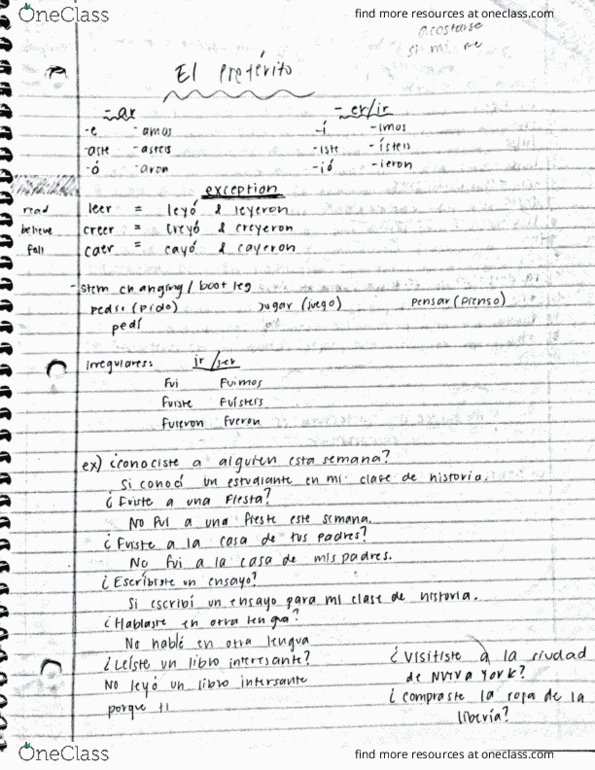 OneClass
find more resources at oneclass.com
acostarse
si mi me
El Pretérito
-ar -er/ir
-e -amos -í -imos
-aste -asteis -iste -ísteis
-ó -aron -ió -ieron
exception
read leer = leyó & leyeron
believe creer = creyó & creyeron
fall caer = cayó & cayeron
- stem changing/boot leg
pedro (pido) jugar (juego) pensar (pienso)
pedí
irregulares: ir/ser
Fui Fuimos
Fuiste Fuísteis
Fuieron Fueron
ex) ¿conociste a alguien esta semana?
Si conocí un estudiante en mi clase de historia.
¿Fuiste a una Fiesta?
No Fui a una fieste este semana.
¿Fuiste a la casa de tus padres?
No fui a la casa de mis padres.
¿Escribiste un ensayo?
Si escribí un ensayo para mi clase de historia.
¿Hablaste en otra lengua?
No hablé en otra lengua
¿Leíste un libro interesante?
No leyó un libro intersante
porque ti
¿Visitiste a la ciudad
de Nueva York?
¿compraste la ropa de la
libería?
OneClass
find more resources at oneclass.com